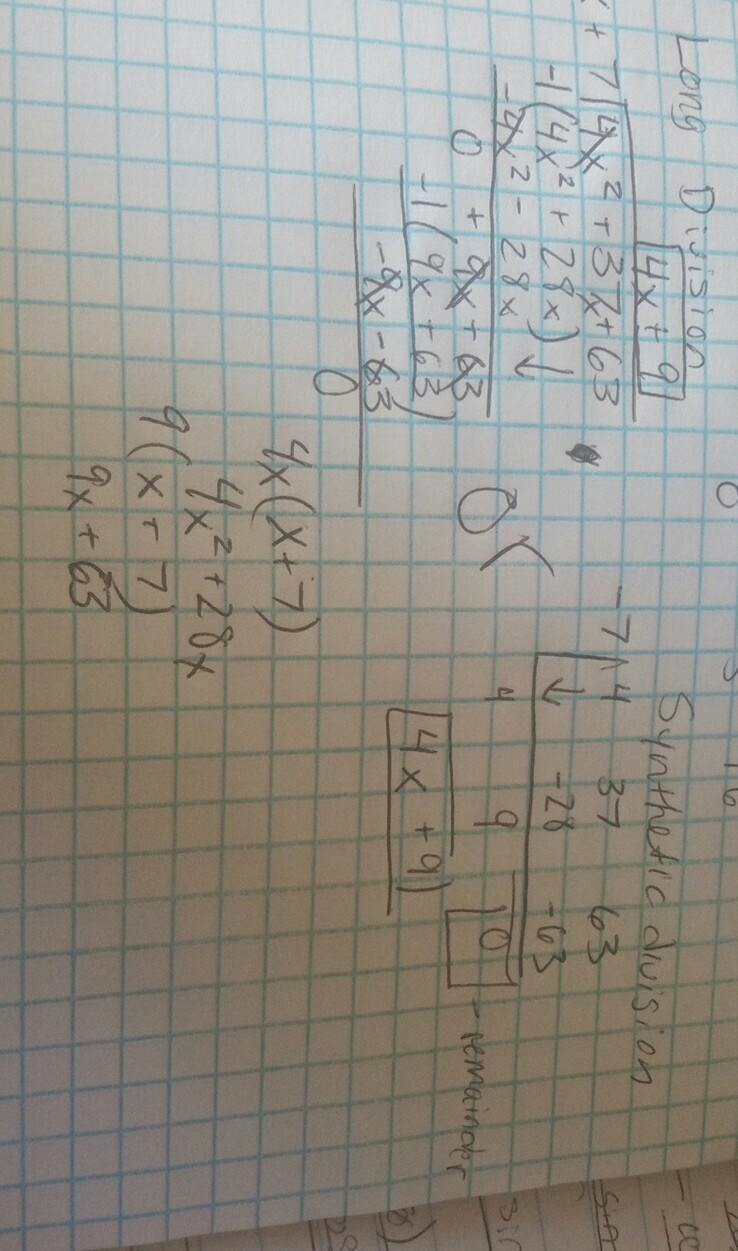 Long Division
4x + 9
x + 7 4x² + 37x + 63
-1(4x² + 28x) ↓
-4x² - 28x
0 + 9x + 63
-1(9x + 63)
-9x - 63
0
4x(x+7)
4x² + 28x
9(x + 7)
9x + 63
OR
Synthetic division
-7 4 37 63
↓ -28 -63
4 9 0 - remainder
4x + 9
16